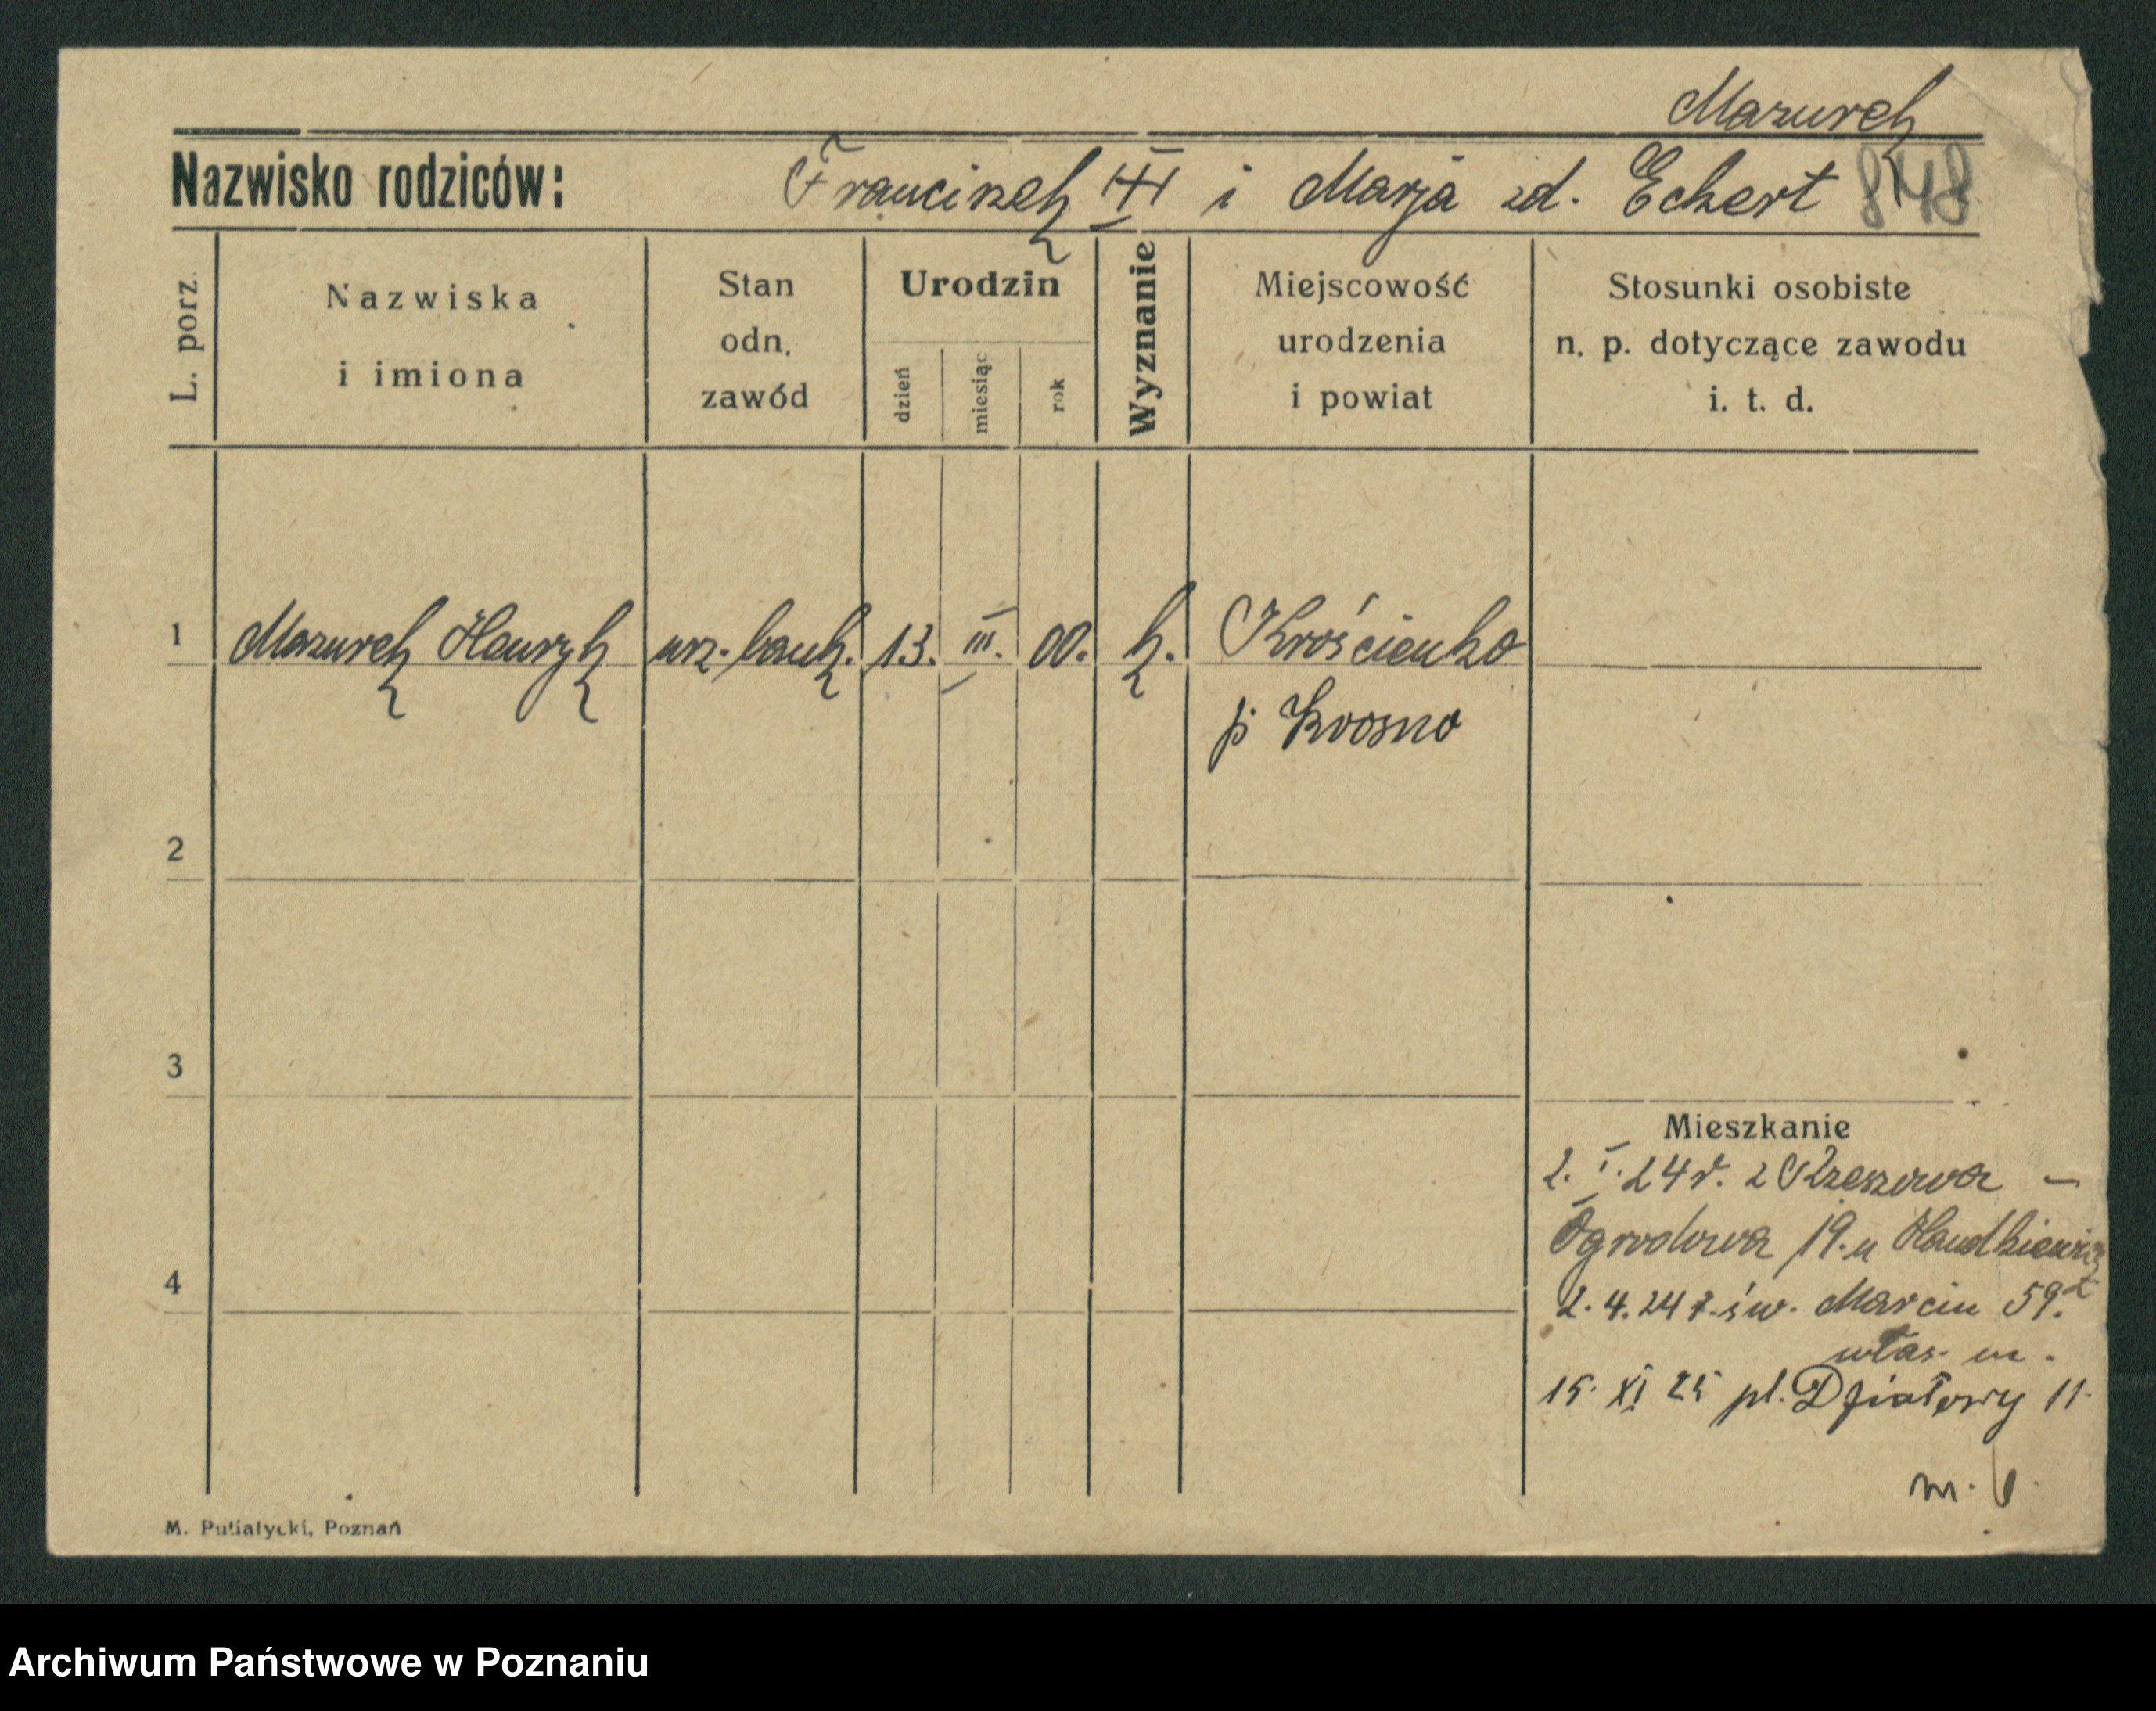 Mazurek
Nazwisko rodziców: Franciszek i Marja zd. Eckert 848
L. porz.
Nazwiska
i imiona
Stan
odn.
zawód
Urodzin
dzień
miesiąc
rok
Wyznanie
Miejscowość
urodzenia
i powiat
Stosunki osobiste
n. p. dotyczące zawodu
i. t. d.
1 Mazurek Henryk urz. bank. 13. III. 00. k. Krościenko
p. Krosno
2
3
4
Mieszkanie
2. I. 24 r. z Rzeszowa –
Ogrodowa 19. u
2. 4. 24 r. św. Marcin 59.
włas. m.
15. XI 25 pl. Działowy 11.
m. 6.
M. Putiatycki, Poznań
Archiwum Państwowe w Poznaniu